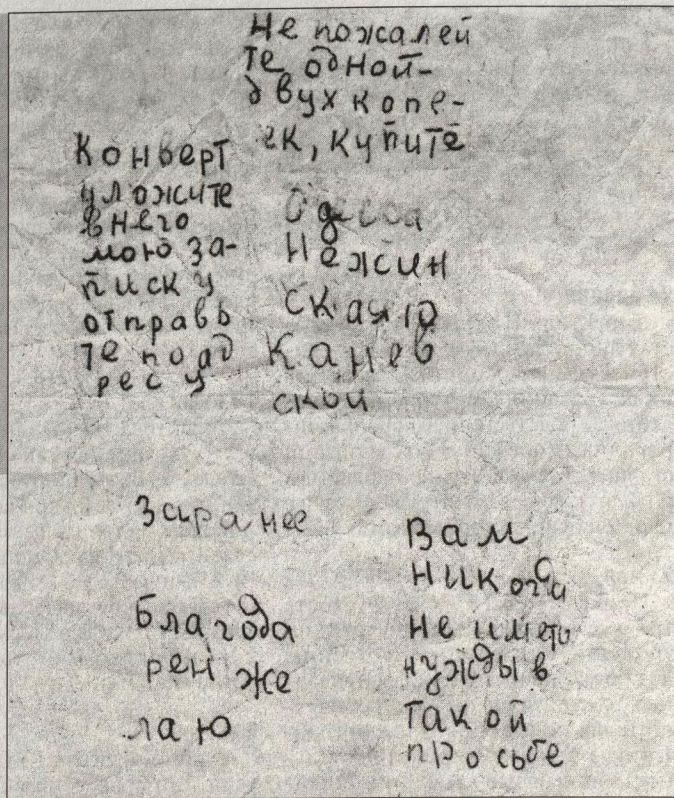 Не пожалей
те одной-
двух копе-
ек, купите
Конверт
уложите
в него
мою за-
писку
отправь
те по ад
ресу
Одесса
Нежин
ская 10
Канев
ской
Заранее
благода
рен же
лаю
Вам
никогда
не иметь
нужды в
такой
просьбе